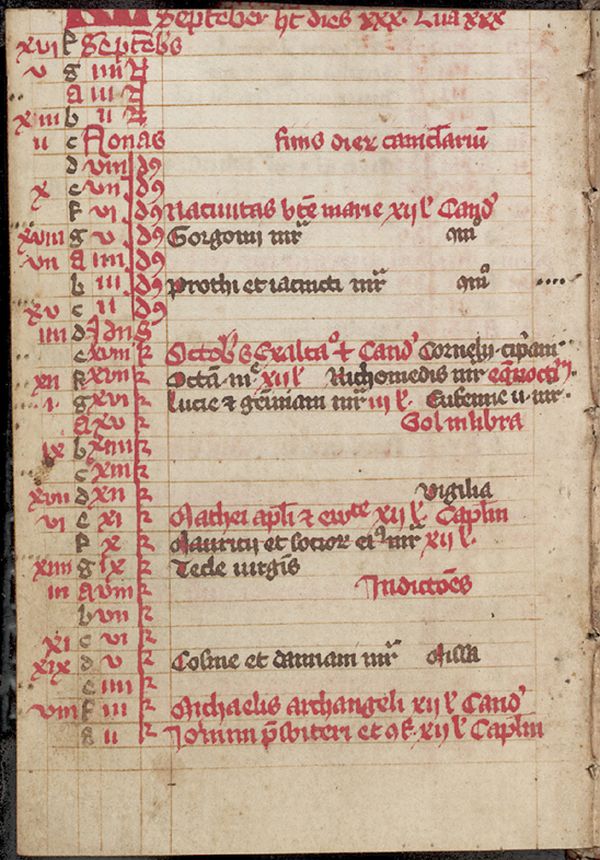 KL September ht dies xxx. Lua xxx
xvi f Septēbs
v g iiii N
A iii N
xiii b ii N
ii c Nonas finis dier caniclariū
d viii id9
x e vii id9
f vi id9 Natiuitas bte marie xii l' Cand'
xviii g v id9 Gorgonii mr
vii A iiii id9
b iii id9 Prothi et iacincti mr
xv c ii id9
iiii d Idus
e xviii k Octobs Exalta° + Cand' Cornelii cip'ani
xii f xvii k xii l' Nichomedis mr
i g xvi k Lucie & gemiani mr iii l. Eufemie u mr.
A xv k Sol in libra
ix b xiiii k
c xiii k
xvii d xii k Vigilia
vi e xi k Mathei apli & xii l. Caplm
f x k Mauricii et socior ei9 mr xii l.
xiiii g ix k Tecle uirgis
iii A viii k Indictoēs
b vii k
xi c vi k
xix d v k Cosme et damiani mr Missa
e iiii k
viii f iii k Michaelis archangeli xii l' Cand'
g ii k p̄sbiteri et xii l' Caplm